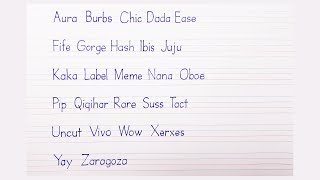 Aura Burbs Chic Dada Ease
Fife Gorge Hash Ibis Juju
Kaka Label Meme Nana Oboe
Pip Qiqihar Rare Suss Tact
Uncut Vivo Wow Xerxes
Yay Zaragoza